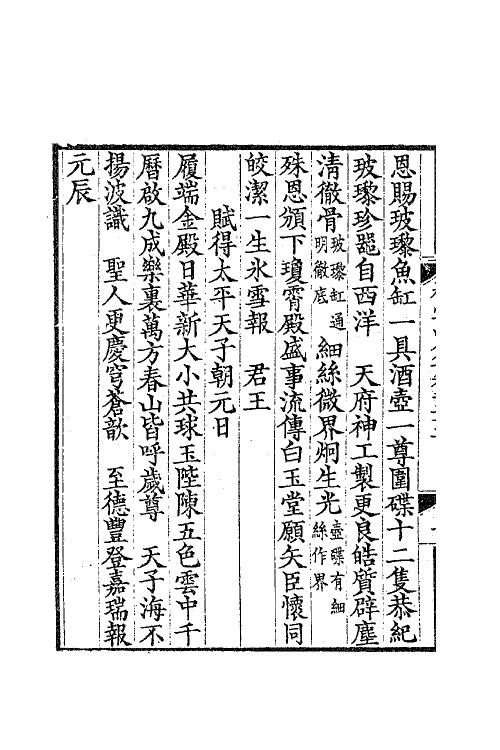 恩賜玻瓈魚缸一具酒壺一尊圍碟十二隻恭紀
玻瓈珍器自西洋　天府神工製更良皓質辟塵
清徹骨玻瓈缸通明徹底細絲微界炯生光壺碟有細絲作界
殊恩頒下瓊霄殿盛事流傳白玉堂願矢臣懷同
皎潔一生氷雪報　君王
賦得太平天子朝元日
履端金殿日華新大小共球玉陛陳五色雲中千
曆啟九成樂裏萬方春山皆呼歲尊　天子海不
揚波識　聖人更慶穹蒼歆　至德豐登嘉瑞報
元辰